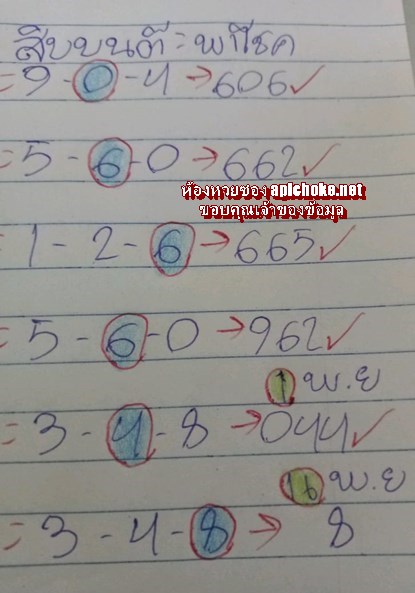 สิบบนดี = พาโชค
= 9 - 0 - 4 → 606 ✓
= 5 - 6 - 0 → 662 ✓
ห้องหวยซอง apichoke.net
ขอบคุณเจ้าของข้อมูล
= 1 - 2 - 6 → 665 ✓
= 5 - 6 - 0 → 962 ✓
1 พ.ย
= 3 - 4 - 8 → 044 ✓
16 พ.ย
= 3 - 4 - 8 → 8